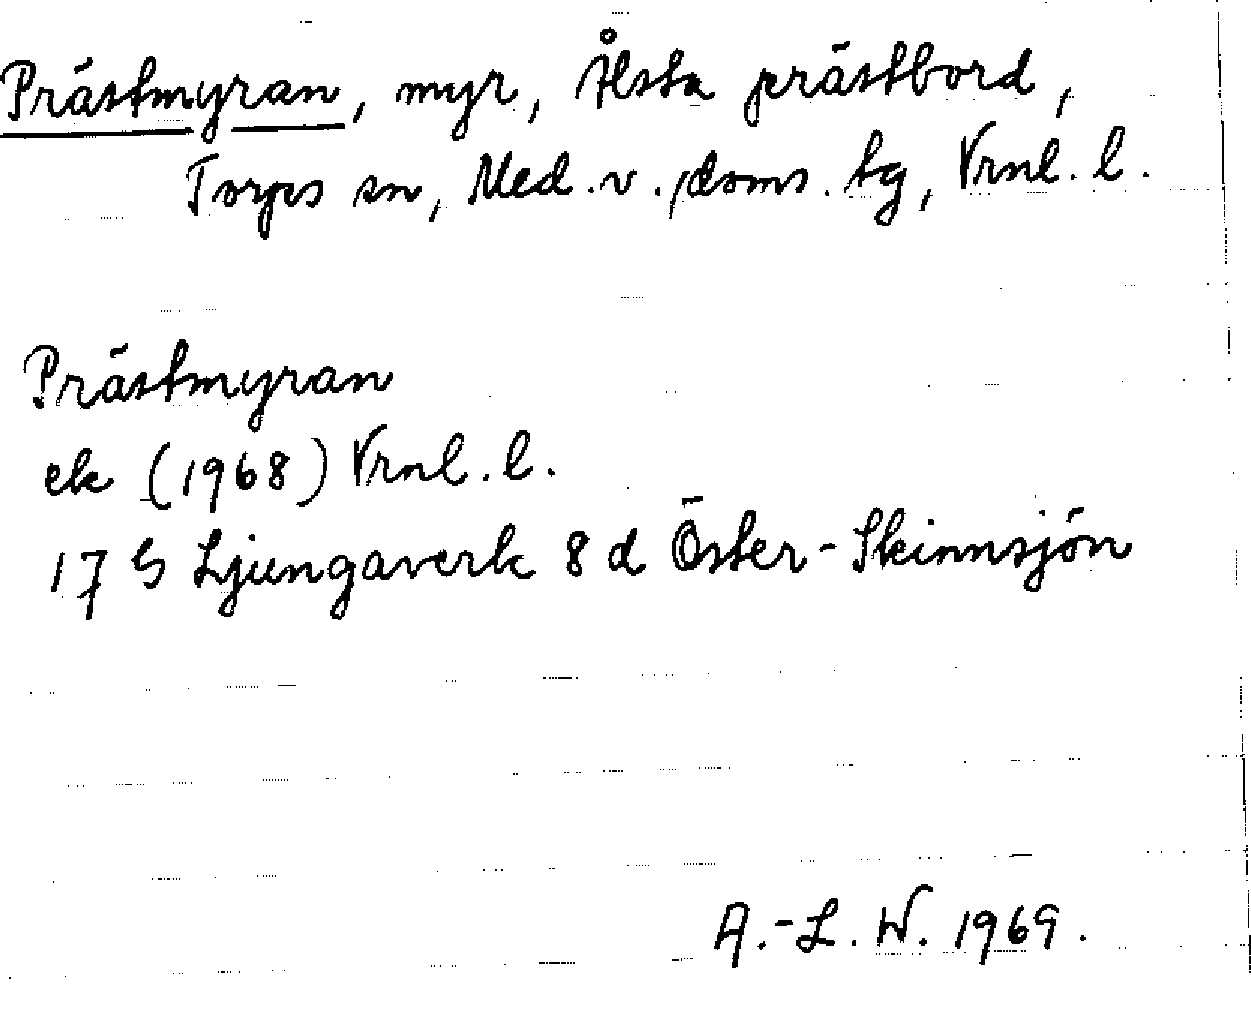 Prästmyran, myr, Ålsta prästbord,
Torps sn, Med. v. doms. tg, Vrnl. l.
Prästmyran
ek (1968) Vrnl. l.
17 G Ljungaverk 8 d Öster-Skinnsjön
A.-L. W. 1969.